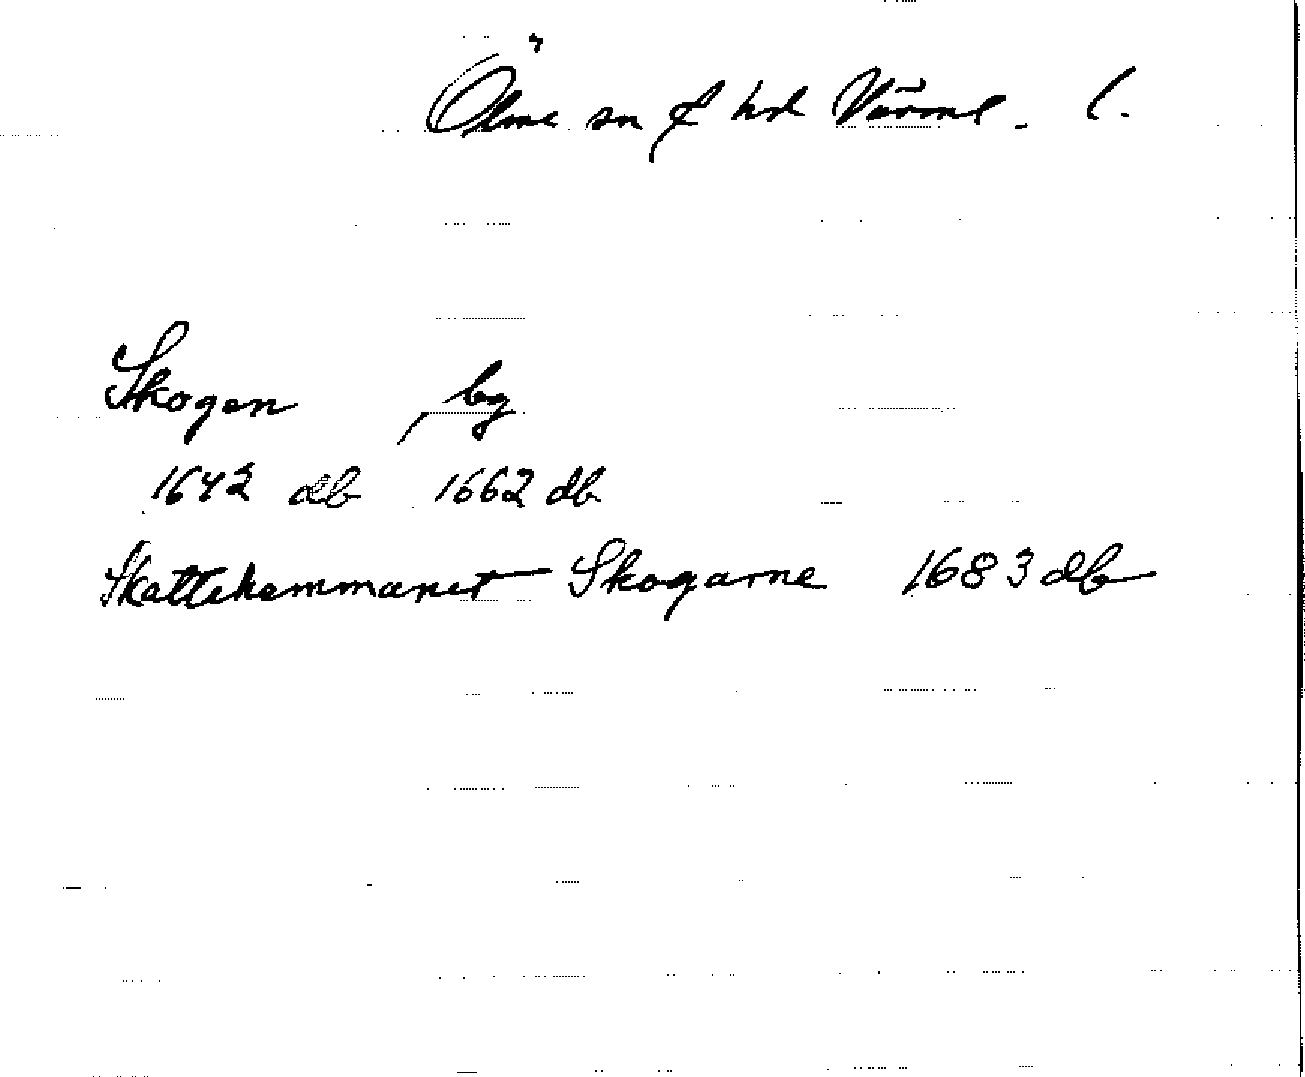 Ölme sn & hd Värml. l.
Skogen by
1642 db 1662 db
Skattehemmanet Skogarne 1683 db